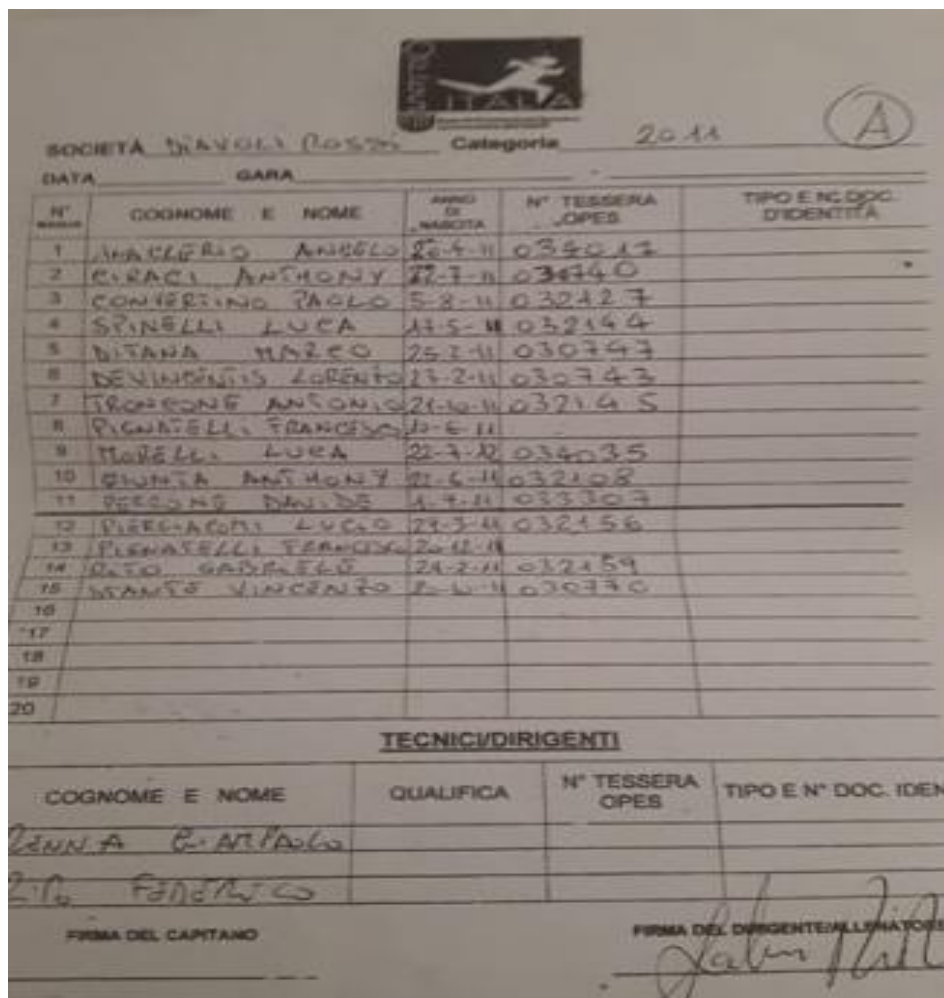 ITALIA
A
SOCIETÀ DIAVOLI ROSSI Categoria 2011
DATA GARA
N° COGNOME E NOME ANNO DI NASCITA N° TESSERA OPES TIPO E N. DOC. D'IDENTITÀ
1 ANGELO 034017
2 CIRACI ANTHONY 22-7-11 030740
3 CONVERTINO PAOLO 5-8-11 032127
4 SPINELLI LUCA 17-5-11 032144
5 DITANA MARCO 25-2-11 030747
6 DEVINCENTIS LORENZO 27-2-11 030743
7 TRONCONE ANTONIO 21-10-11 032145
8 PIGNATELLI FRANCESCO 10-6-11
9 MORELLI LUCA 22-7-12 034035
10 GIUNTA ANTHONY 032108
11 PERRONE DAVIDE 1-7-11 033307
12 PIERGIACOMI LUCIO 032156
13 PIGNATELLI FRANCESCO 20-12-11
14 RITO GABRIELE 032159
15 VINCENZO 030770
16
17
18
19
20
TECNICI/DIRIGENTI
COGNOME E NOME QUALIFICA N° TESSERA OPES TIPO E N° DOC. IDEN
GIANPAOLO
FEDERICO
FIRMA DEL CAPITANO FIRMA DEL DIRIGENTE/ALLENATORE